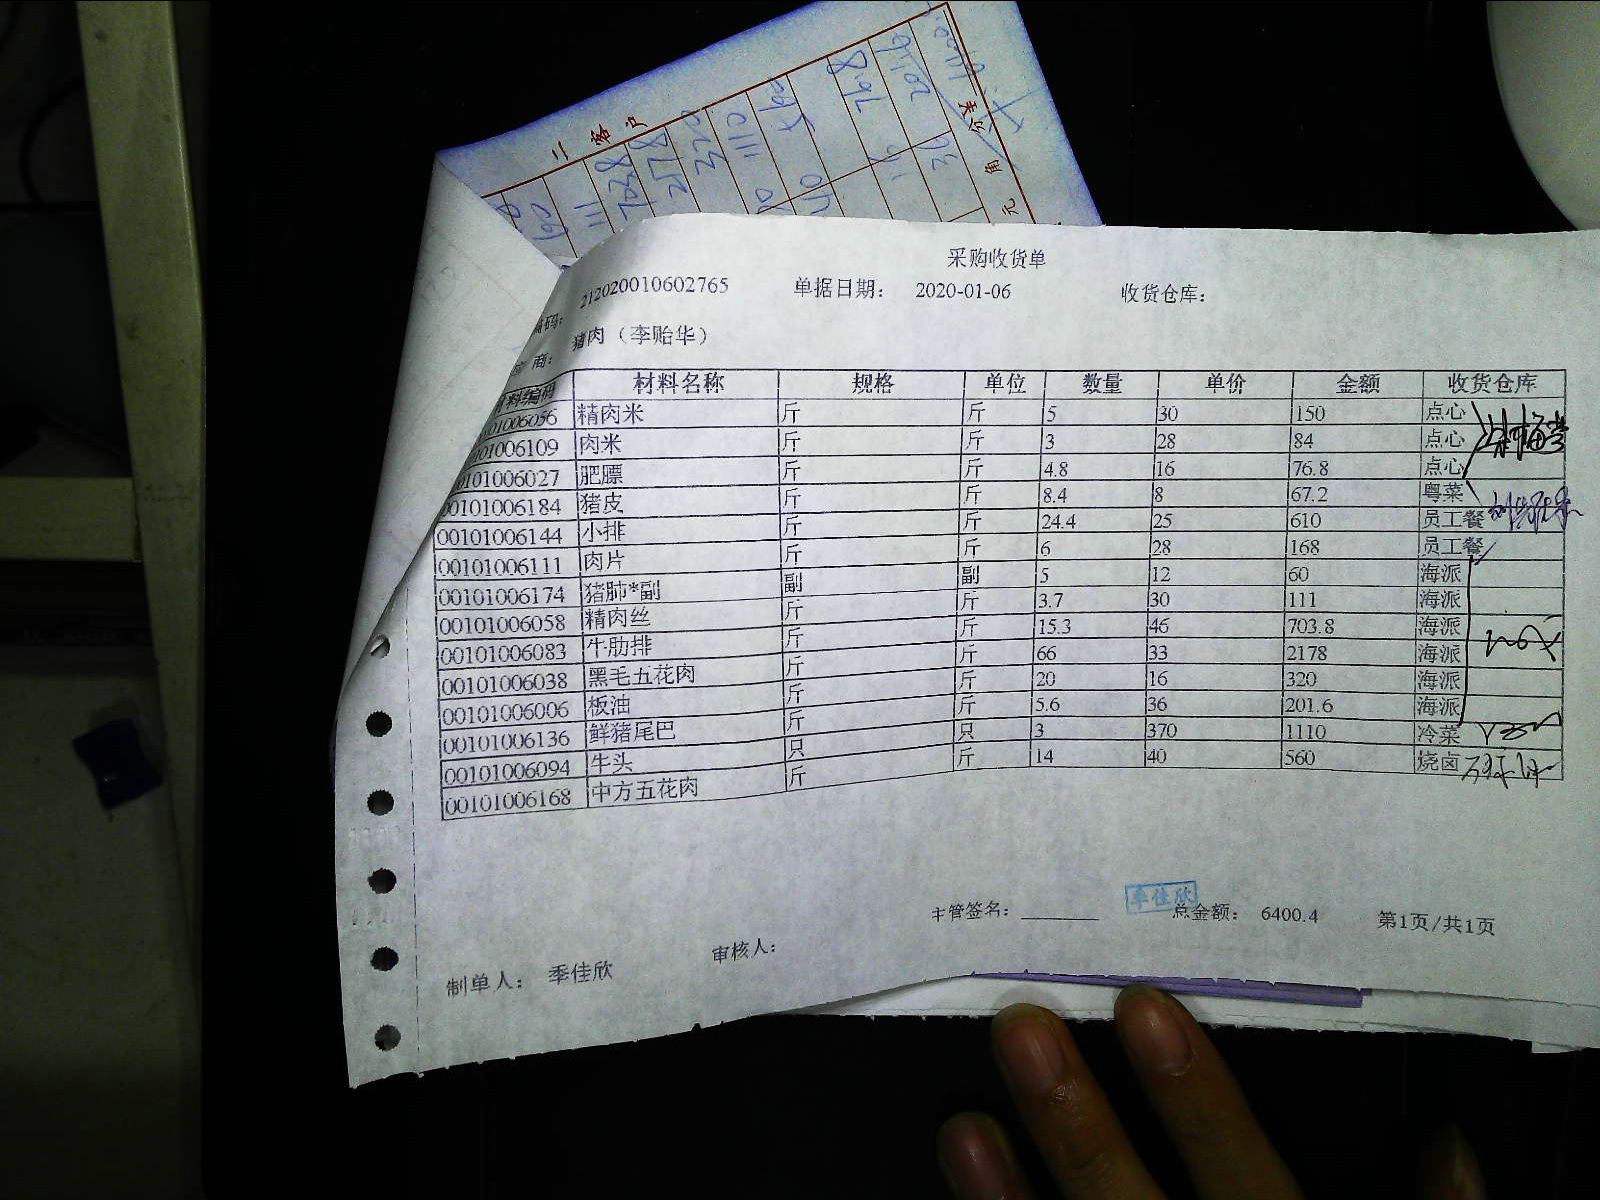 二 客 户
元 角 分
99
111
7038
2178
320
1110
采购收货单
编码： 212020010602765 单据日期： 2020-01-06 收货仓库：
商： 猪肉（李贻华）
材料编码 材料名称 规格 单位 数量 单价 金额 收货仓库
01006056 精肉米 斤 斤 5 30 150 点心
0101006109 肉米 斤 斤 3 28 84 点心
0101006027 肥膘 斤 斤 4.8 16 76.8 点心
00101006184 猪皮 斤 斤 8.4 8 67.2 粤菜
00101006144 小排 斤 斤 24.4 25 610 员工餐
00101006111 肉片 斤 斤 6 28 168 员工餐
00101006174 猪肺*副 副 副 5 12 60 海派
00101006058 精肉丝 斤 斤 3.7 30 111 海派
00101006083 牛肋排 斤 斤 15.3 46 703.8 海派
00101006038 黑毛五花肉 斤 斤 66 33 2178 海派
00101006006 板油 斤 斤 20 16 320 海派
00101006136 鲜猪尾巴 斤 斤 5.6 36 201.6 海派
00101006094 牛头 只 只 3 370 1110 冷菜
00101006168 中方五花肉 斤 斤 14 40 560 烧卤
主管签名： 季佳欣 总金额： 6400.4 第1页/共1页
制单人： 季佳欣 审核人：